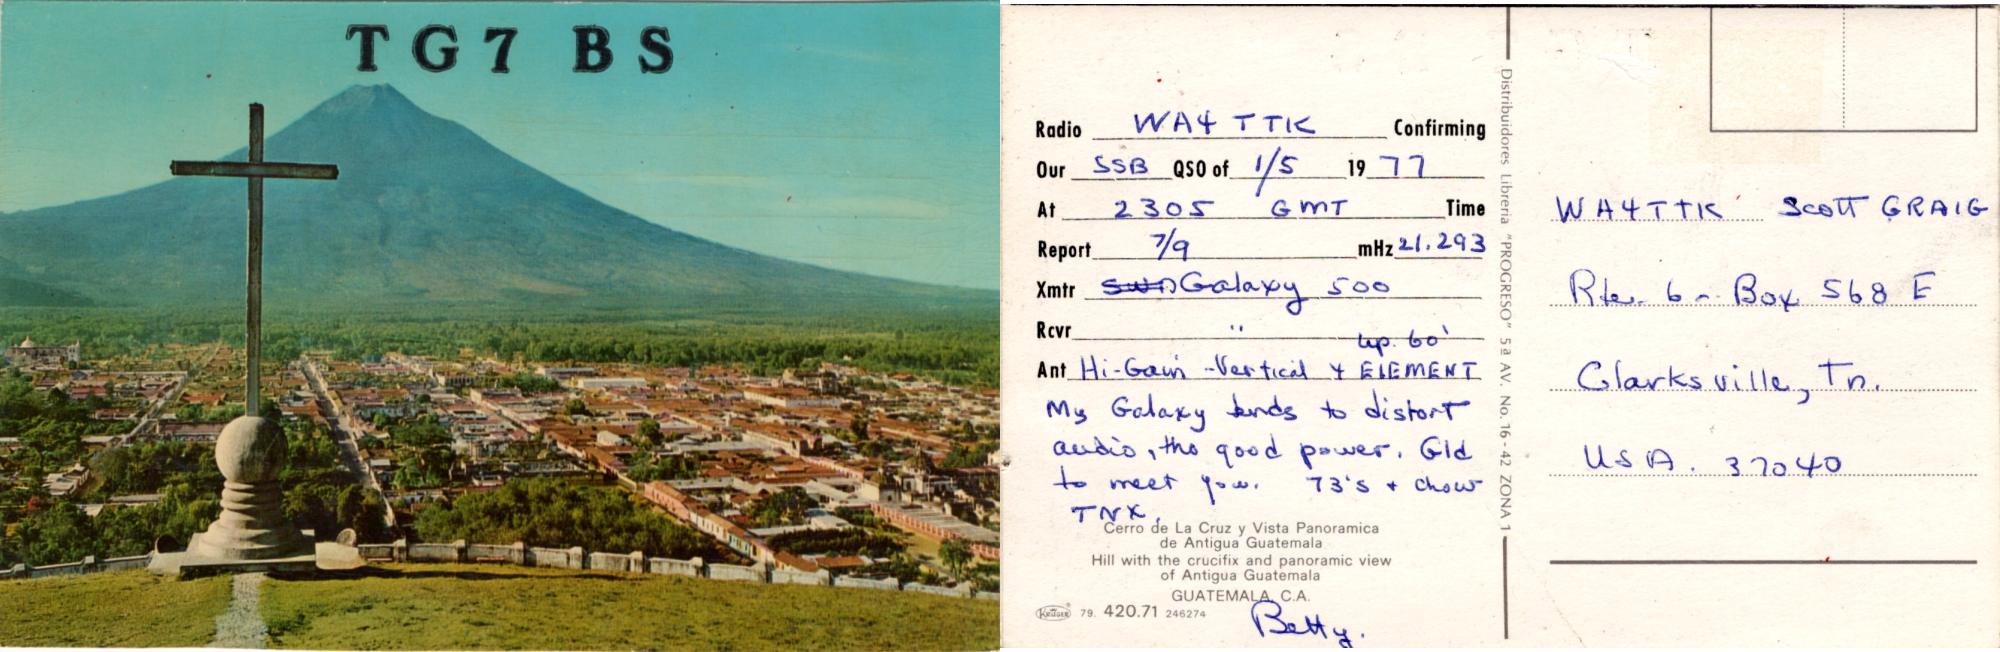 TG7 BS
Radio WA4 TTK Confirming
Our SSB QSO of 1/5 1977
At 2305 GMT Time
Report 7/9 mHz 21.293
Xmtr Galaxy 500
Rcvr "
up 60'
Ant Hi-Gain - Vertical 4 ElEMENT
My Galaxy tends to distort
audio, tho good power. Gld
to meet you. 73's + chow
TNX.
Cerro de La Cruz y Vista Panoramica
de Antigua Guatemala
Hill with the crucifix and panoramic view
of Antigua Guatemala
GUATEMALA, C.A.
KRÜGER 79. 420.71 246274
Betty.
Distribuidores Libreria "PROGRESO" 5a AV. No. 16 - 42 ZONA 1
WA4TTK Scott GRAIG
Rte. 6 - Box 568 E
Clarksville, Tn.
USA. 37040